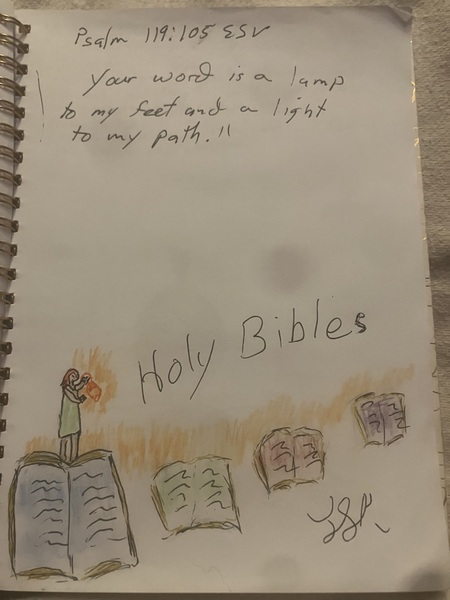 Psalm 119:105 ESV
"Your word is a lamp
to my feet and a light
to my path."
Holy Bibles